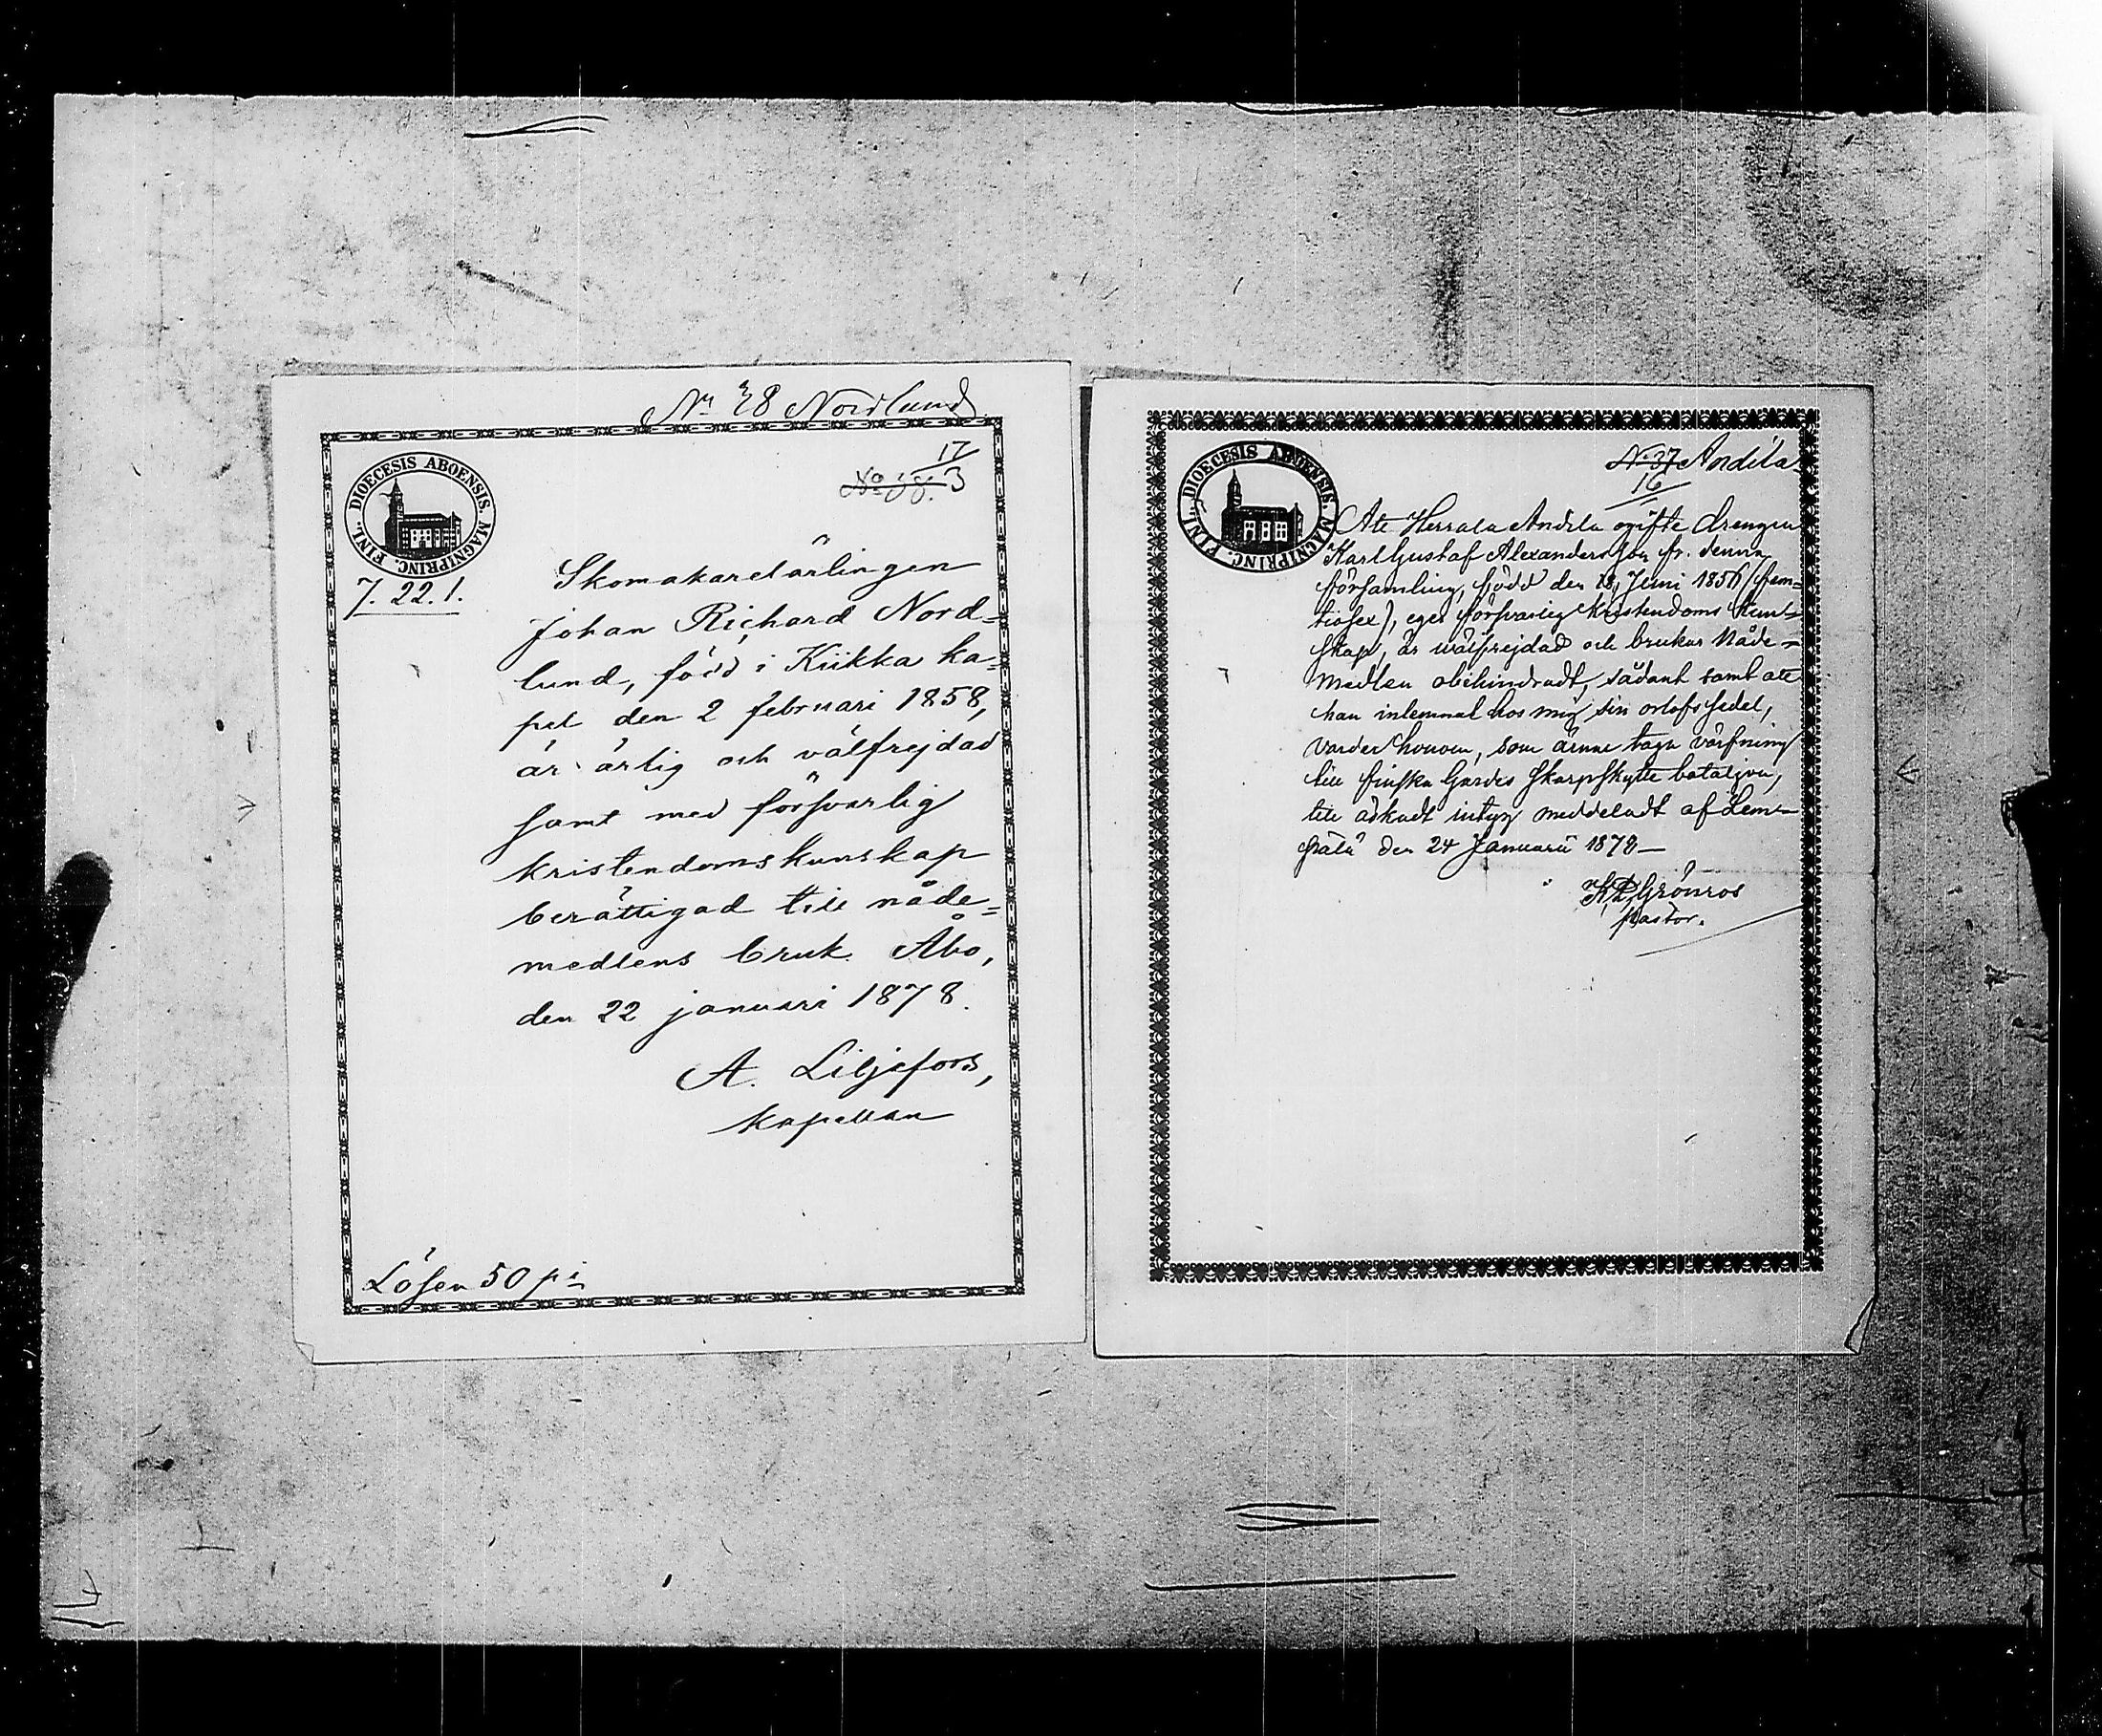 Nr 38 Nordlund
17
No 38. 3
DIOECESIS ABOENSIS. MAGNIPRINC. FINL.
7. 22. 1.
Skomakarelärlingen
Johan Richard Nord=
lund, född i Kiikka ka=
pel den 2 februari 1858,
är ärlig och välfrejdad
samt med försvarlig
kristendomskunskap
berättigad till nåde=
medlens bruk. Åbo,
den 22 januari 1878.
A. Liljefors,
kapellan
Lösen 50 pi
DIOECESIS ABOENSIS. MAGNIPRINC. FINL.
No 37 Andila
16
Att Herrala Andila ogifte drengen
Karl Gustaf Alexandersson fr. denna
församling, född den 18 Juni 1856 (fem-
tiosex), eger försvarlig Kristendoms Kunt-
skap, är wälfrejdad och brukar Nåde-
medlen obehindradt, sådant samt att
han inlemnat hos mig sin orlofssedel,
varder honom, som ämnar taga värfning
till finska Gardes Skarpskytte bataljon,
till äskadt intyg meddeladt af Lem-
pälä den 24 Januarii 1878—
K. P. Grönroos
pastor.
14